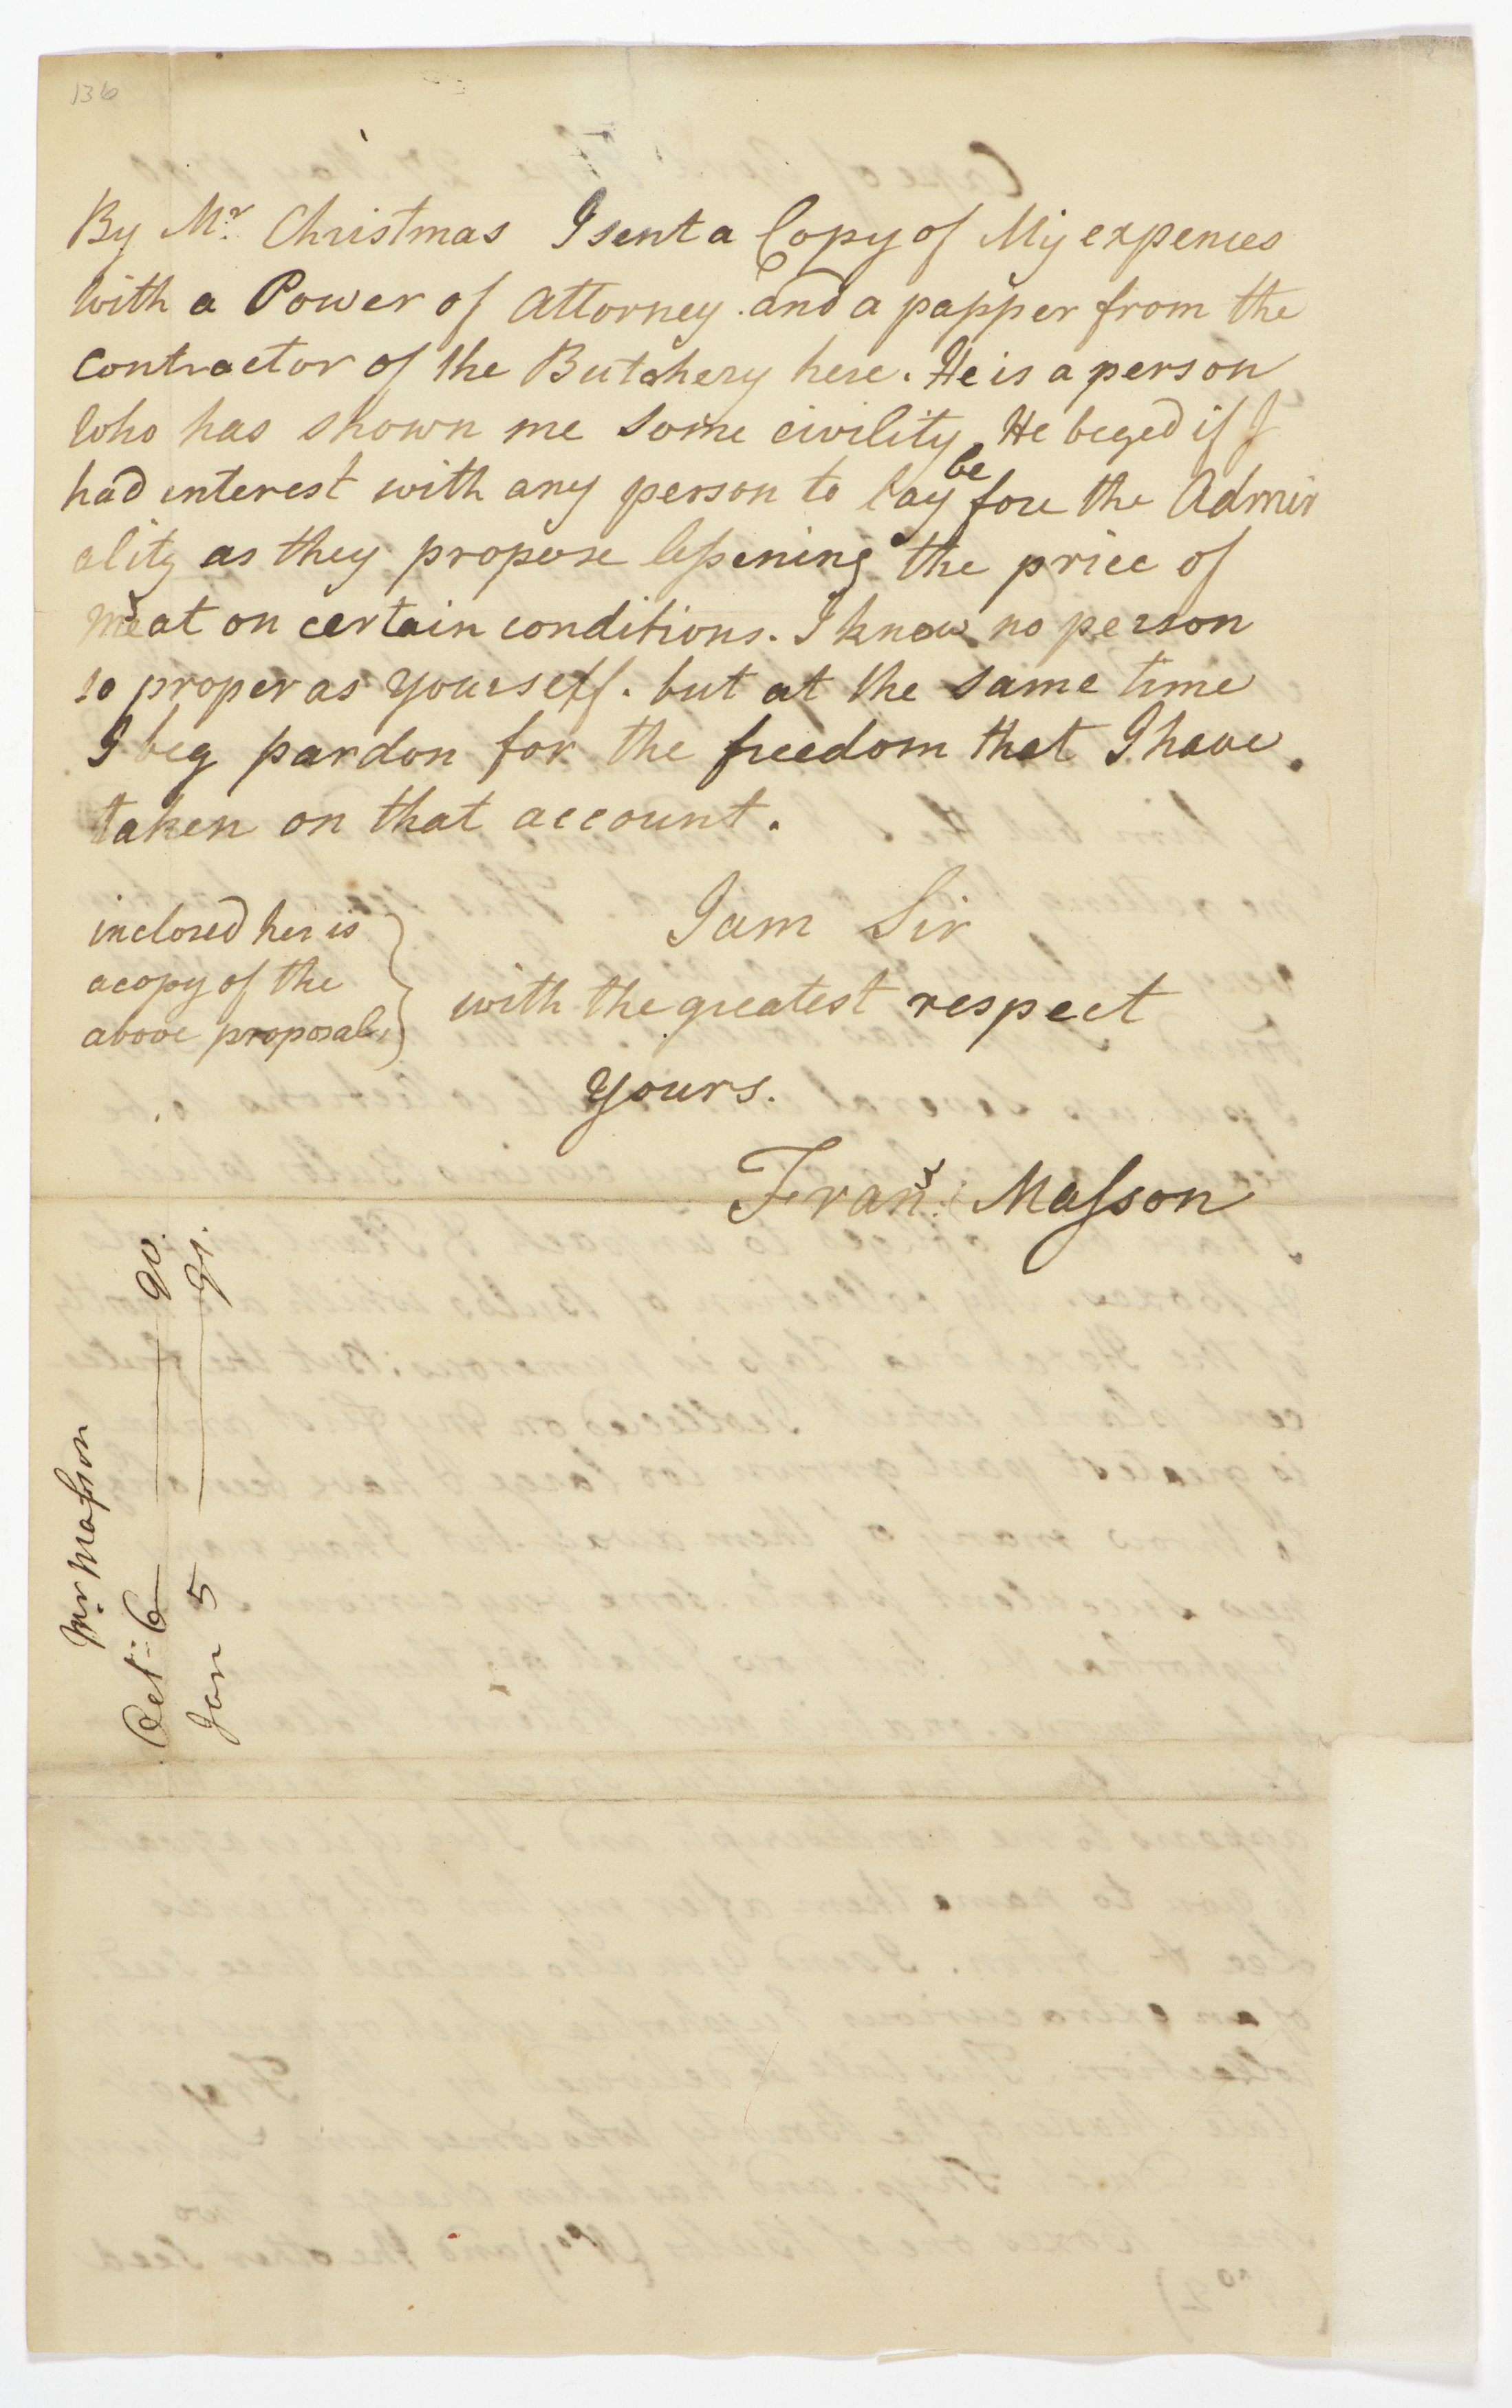 136
By Mr. Christmas I sent a Copy of My expences
with a Power of Attorney. and a papper from the
Contractor of the Butchery here. He is a person
Who has shown me some civility, He beged if I
had interest with any person to lay before the Admir
ality as they propose lessening the price of
Meat on certain conditions. I know no person
so proper as Yourself. but at the same time
I beg pardon for the freedom that I have
taken on that account.
I am Sir
with the greatest respect
Yours.
Frans. Masson
inclosed her is
a copy of the
above proposals
Mr Masson
Oct: 6 — 90.
Jan 5 — 91.